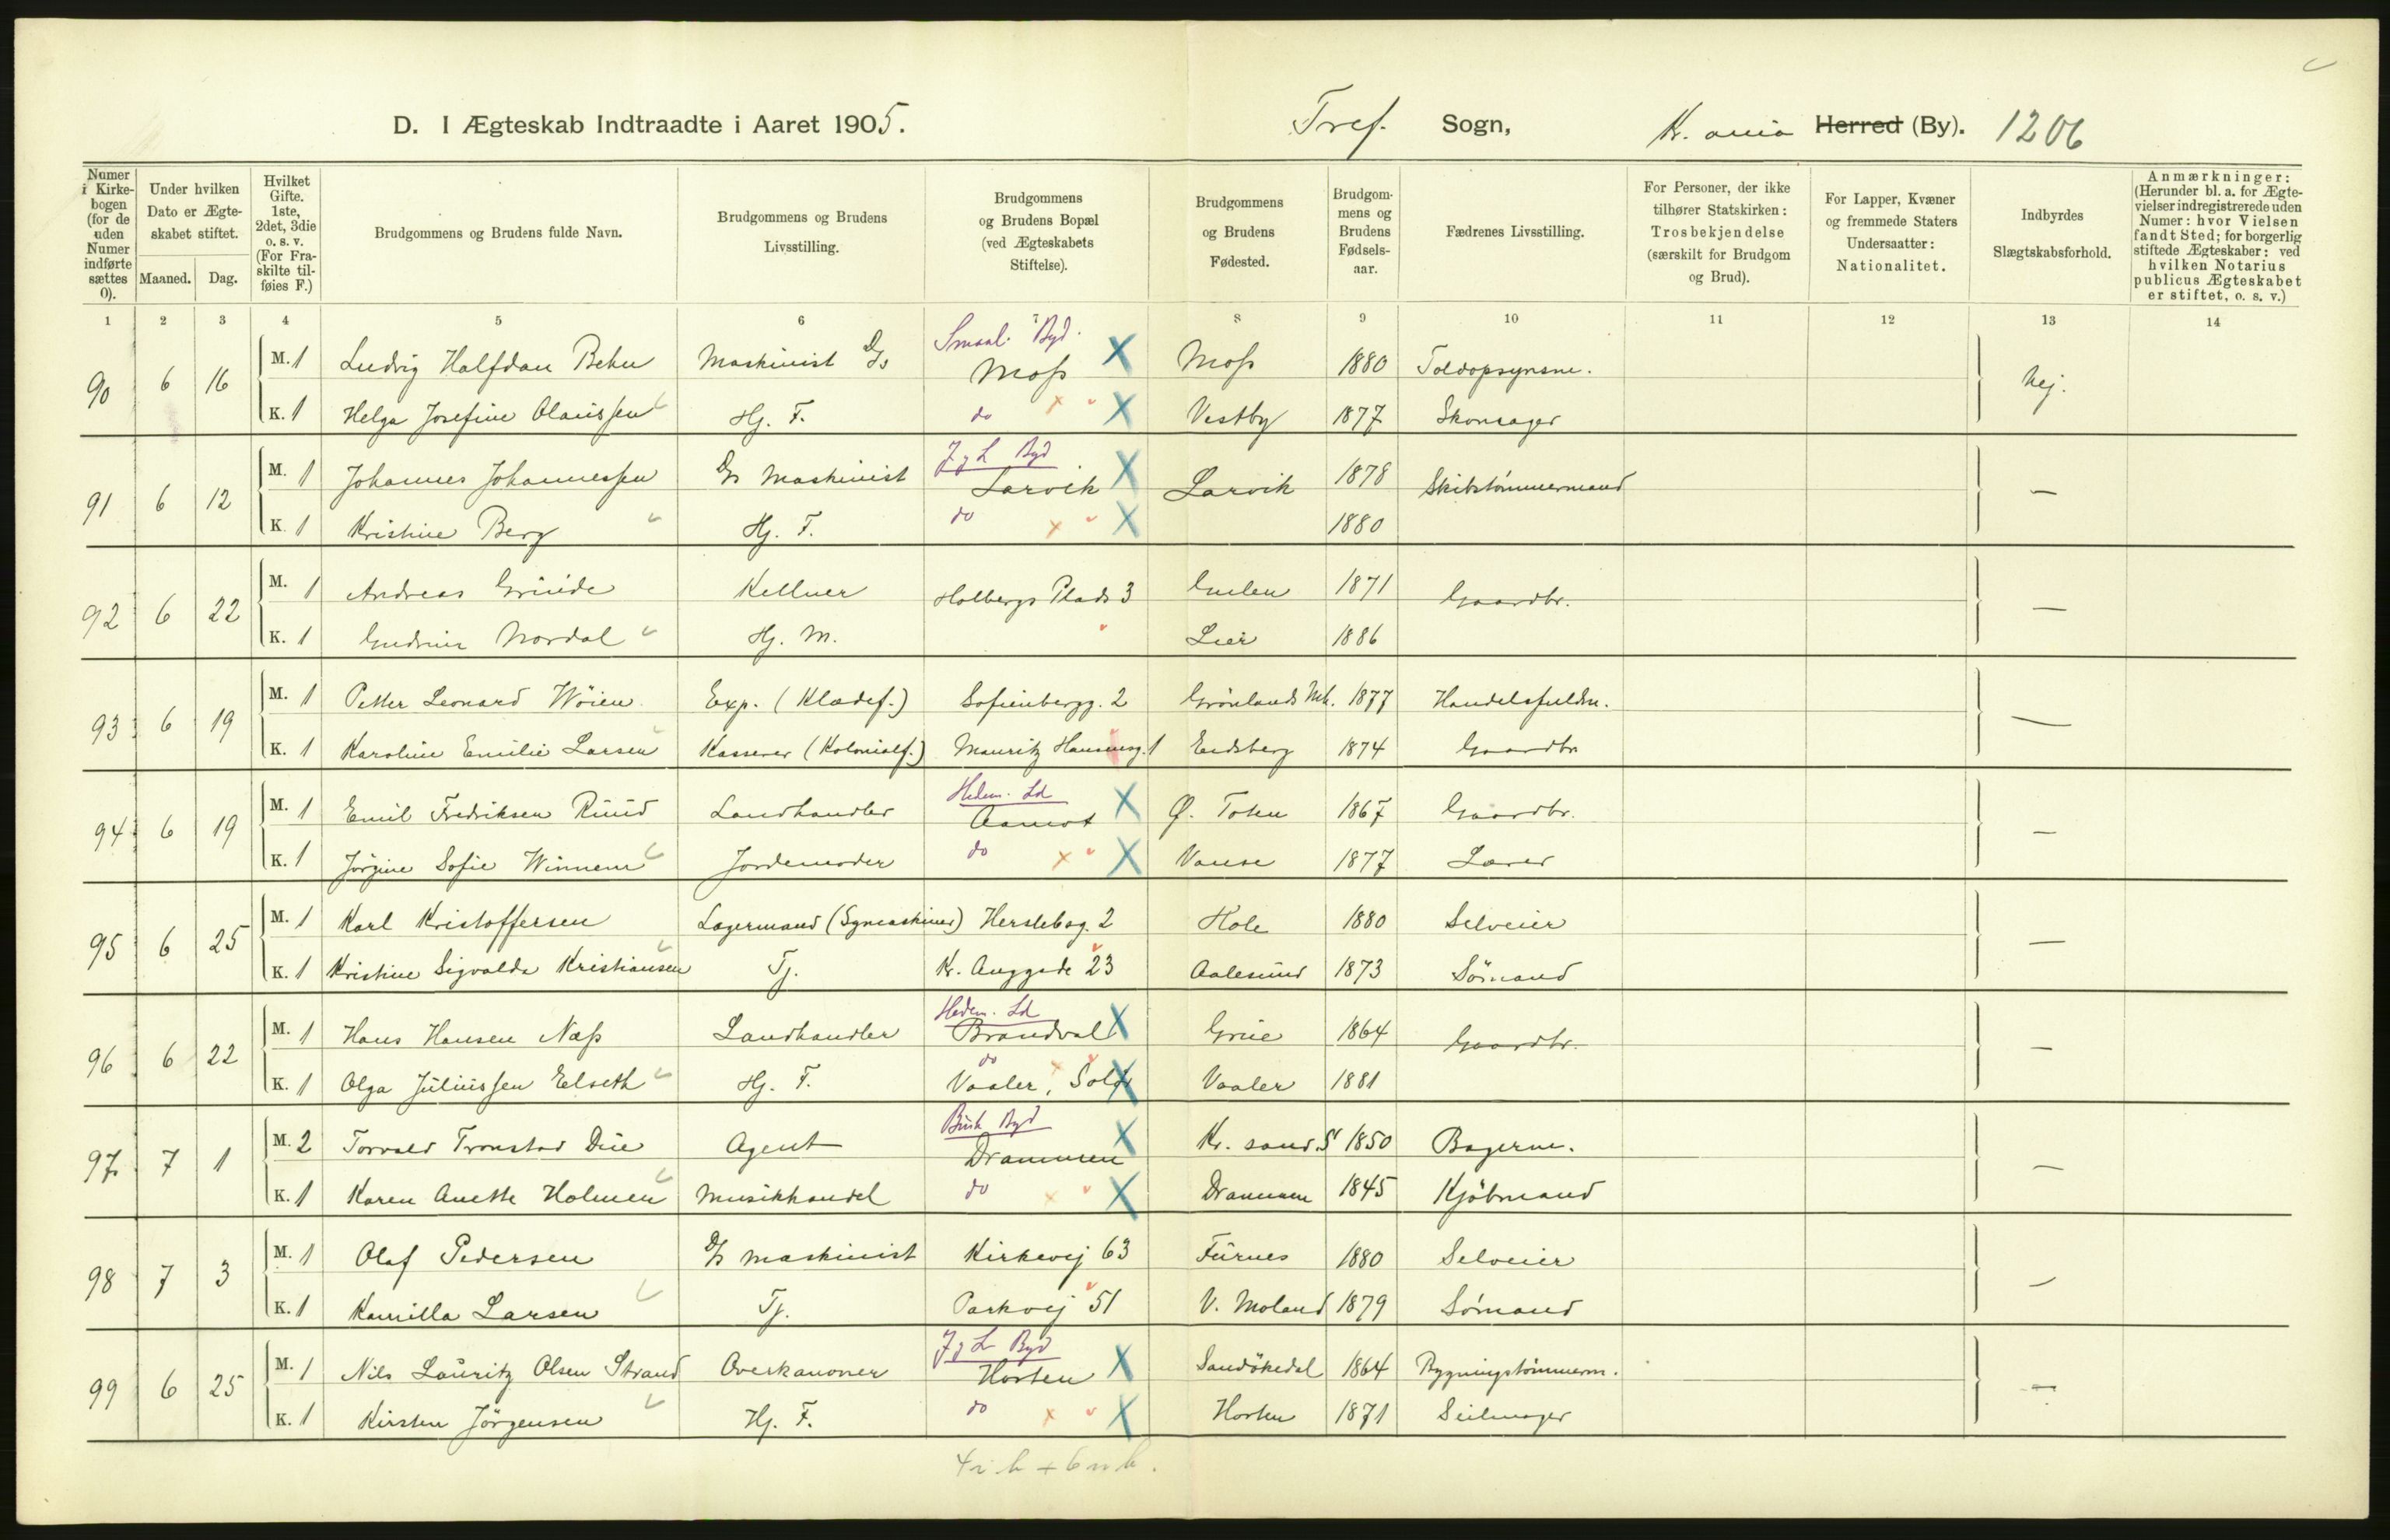 D. I Ægteskab Indtraadte i Aaret 1905. Tref. Sogn, Kr. ania Herred (By). 1206
Numer i Kirkebogen (for de uden Numer indførte sættes 0).
Under hvilken Dato er Ægteskabet stiftet.
Maaned. Dag.
Hvilket Gifte. 1ste, 2det, 3die o. s. v. (For Fraskilte tilføies F.)
Brudgommens og Brudens fulde Navn.
Brudgommens og Brudens Livsstilling.
Brudgommens og Brudens Bopæl (ved Ægteskabets Stiftelse).
Brudgommens og Brudens Fødested.
Brudgommens og Brudens Fødselsaar.
Fædrenes Livsstilling.
For Personer, der ikke tilhører Statskirken: Trosbekjendelse (særskilt for Brudgom og Brud).
For Lapper, Kvæner og fremmede Staters Undersaatter: Nationalitet.
Indbyrdes Slægtskabsforhold.
Anmærkninger: (Herunder bl. a. for Ægtevielser indregistrerede uden Numer: hvor Vielsen fandt Sted; for borgerlig stiftede Ægteskaber: ved hvilken Notarius publicus Ægteskabet er stiftet, o. s. v.)
1 2 3 4 5 6 7 8 9 10 11 12 13 14
Smaal. Byd.
90 6 16 M. 1 Ludvig Halfdan Behn Maskinist D/s Moss X Moss 1880 Toldopsynsm. Nej.
K. 1 Helga Josefine Olaussen Hj. F. do X Vestby 1877 Skomager
J & L Byd
91 6 12 M. 1 Johannes Johannessen D/s Maskinist Larvik X Larvik 1878 Skibstømmermand —
K. 1 Kristine Berg Hj. F. do X 1880
92 6 22 M. 1 Andreas Grinde Kellner Holbergs Plads 3 Gulen 1871 Gaardbr. —
K. 1 Gudrun Nordal Hj. M. Lier 1886
93 6 19 M. 1 Petter Leonard Wöien Exp. (Klædef.) Sofienbergg. 2 Grönlands Mh. 1877 Handelsfuldm. —
K. 1 Karoline Emilie Larsen Kasserer (Kolonialf.) Mauritz Hansensg. 1 Eidsberg 1874 Gaardbr
Hedm. Ld
94 6 19 M. 1 Emil Fredriksen Ruud Landhandler Aamot X Ø. Toten 1867 Gaardbr. —
K. 1 Jörgine Sofie Winnem Jordemoder do X Vanse 1877 Lærer
95 6 25 M. 1 Karl Kristoffersen Lagermand (Symaskiner) Herslebsg. 2 Hole 1880 Selveier —
K. 1 Kristine Sigvalda Kristiansen Tj. Kr. Auggade 23 Aalesund 1873 Sömand
Hedm. Ld
96 6 22 M. 1 Hans Hansen Næss Landhandler Brandval X Grue 1864 Gaardbr. —
do
K. 1 Olga Juliussen Elseth Hj. F. Vaaler, Solør X Vaaler 1881
Busk Byd
97 7 1 M. 2 Torvald Tronstad Due Agent Drammen X Kr. sand S 1850 Bagerm. —
K. 1 Karen Anette Holmen Musikhandel do X Drammen 1845 Kjöbmand
98 7 3 M. 1 Olaf Pedersen D/s Maskinist Kirkevej 63 Furnes 1880 Selveier —
K. 1 Kamilla Larsen Tj. Parkvej 51 V. Moland 1879 Sömand
J & L Byd
99 6 25 M. 1 Nils Lauritz Olsen Strand Overkanoner Horten X Sandökedal 1864 Bygningstömmerm. —
K. 1 Kirsten Jörgensen Hj. F. do X Horten 1871 Seilmager
4 i. b + 6 u b.